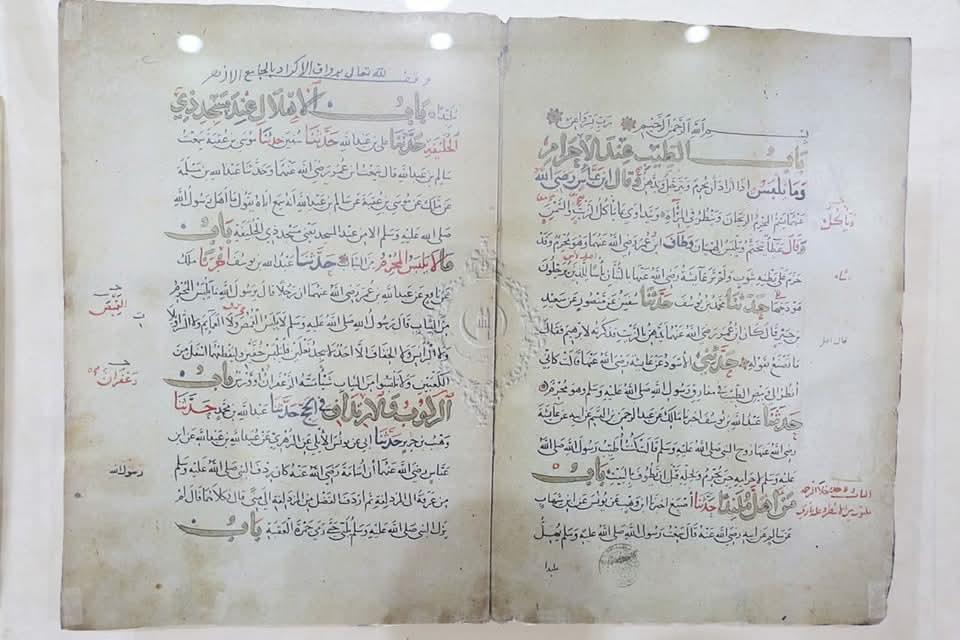 بسم الله الرحمن الرحيم رب زدني علما
باب الطيب عند الاحرام
وما يلبس اذا اراد ان يحرم ويترجل ويدهن وقال ابن عباس رضي الله
عنهما يشم المحرم الريحان وينظر في المرآة ويتداوى بما ياكل الزيت والسمن
وقال عطاء يتختم ويلبس الهميان وطاف ابن عمر رضي الله عنهما وهو محرم وقد
حزم على بطنه بثوب ولم تر عائشة رضي الله عنها بالتبان باسا للذين يرحلون
هودجها حدثنا محمد بن يوسف حدثنا سفين عن منصور عن سعيد
بن جبير قال كان ابن عمر رضي الله عنهما يدهن بالزيت فذكرته لابراهيم فقال
ما تصنع بقوله حدثني الاسود عن عائشة رضي الله عنها قالت كاني
انظر الى وبيص الطيب في مفارق رسول الله صلى الله عليه وسلم وهو محرم
حدثنا عبد الله بن يوسف اخبرنا مالك عن عبد الرحمن بن القسم عن ابيه عن عائشة
رضي الله عنها زوج النبي صلى الله عليه وسلم قالت كنت اطيب رسول الله صلى الله
عليه وسلم لاحرامه حين يحرم ولحله قبل ان يطوف بالبيت باب
من اهل ملبدا حدثنا اصبغ اخبرنا ابن وهب عن يونس عن ابن شهاب
عن سالم عن ابيه رضي الله عنه قال سمعت رسول الله صلى الله عليه وسلم يهل
ملبدا
وياكل
قال ابل
وقف لله تعالى برواق الاكراد بالجامع الازهر
ملبدا باب الاهلال عند مسجد ذي
الحليفة حدثنا علي بن عبد الله حدثنا سفين حدثنا موسى بن عقبة سمعت
سالم بن عبد الله قال سمعت ابن عمر رضي الله عنهما وحدثنا عبد الله بن مسلمة
عن ملك عن موسى بن عقبة عن سالم بن عبد الله انه سمع اباه يقول ما اهل رسول الله
صلى الله عليه وسلم الا من عند المسجد يعني مسجد ذي الحليفة باب
ما لا يلبس المحرم من الثياب حدثنا عبد الله بن يوسف اخبرنا ملك
عن نافع عن عبد الله بن عمر رضي الله عنهما ان رجلا قال يرسول الله ما يلبس المحرم
من الثياب قال رسول الله صلى الله عليه وسلم لا يلبس القمص ولا العمايم ولا السراويلات
ولا البرانس ولا الخفاف الا احد لا يجد نعلين فليلبس خفين وليقطعهما اسفل من
الكعبين ولا تلبسوا من الثياب شيا مسه الزعفران او ورس باب
الركوب والارتداف في الحج حدثنا عبد الله بن محمد حدثنا
وهب بن جرير حدثنا ابي عن يونس الايلي عن الزهري عن عبيد الله بن عبد الله عن ابن
عباس رضي الله عنهما ان اسامة رضي الله عنه كان ردف النبي صلى الله عليه وسلم
من عرفة الى المزدلفة ثم اردف الفضل من المزدلفة الى منى قال فكلاهما قال لم
يزل النبي صلى الله عليه وسلم يلبي حتى رمى جمرة العقبة باب
القميص
زعفران
رسول الله